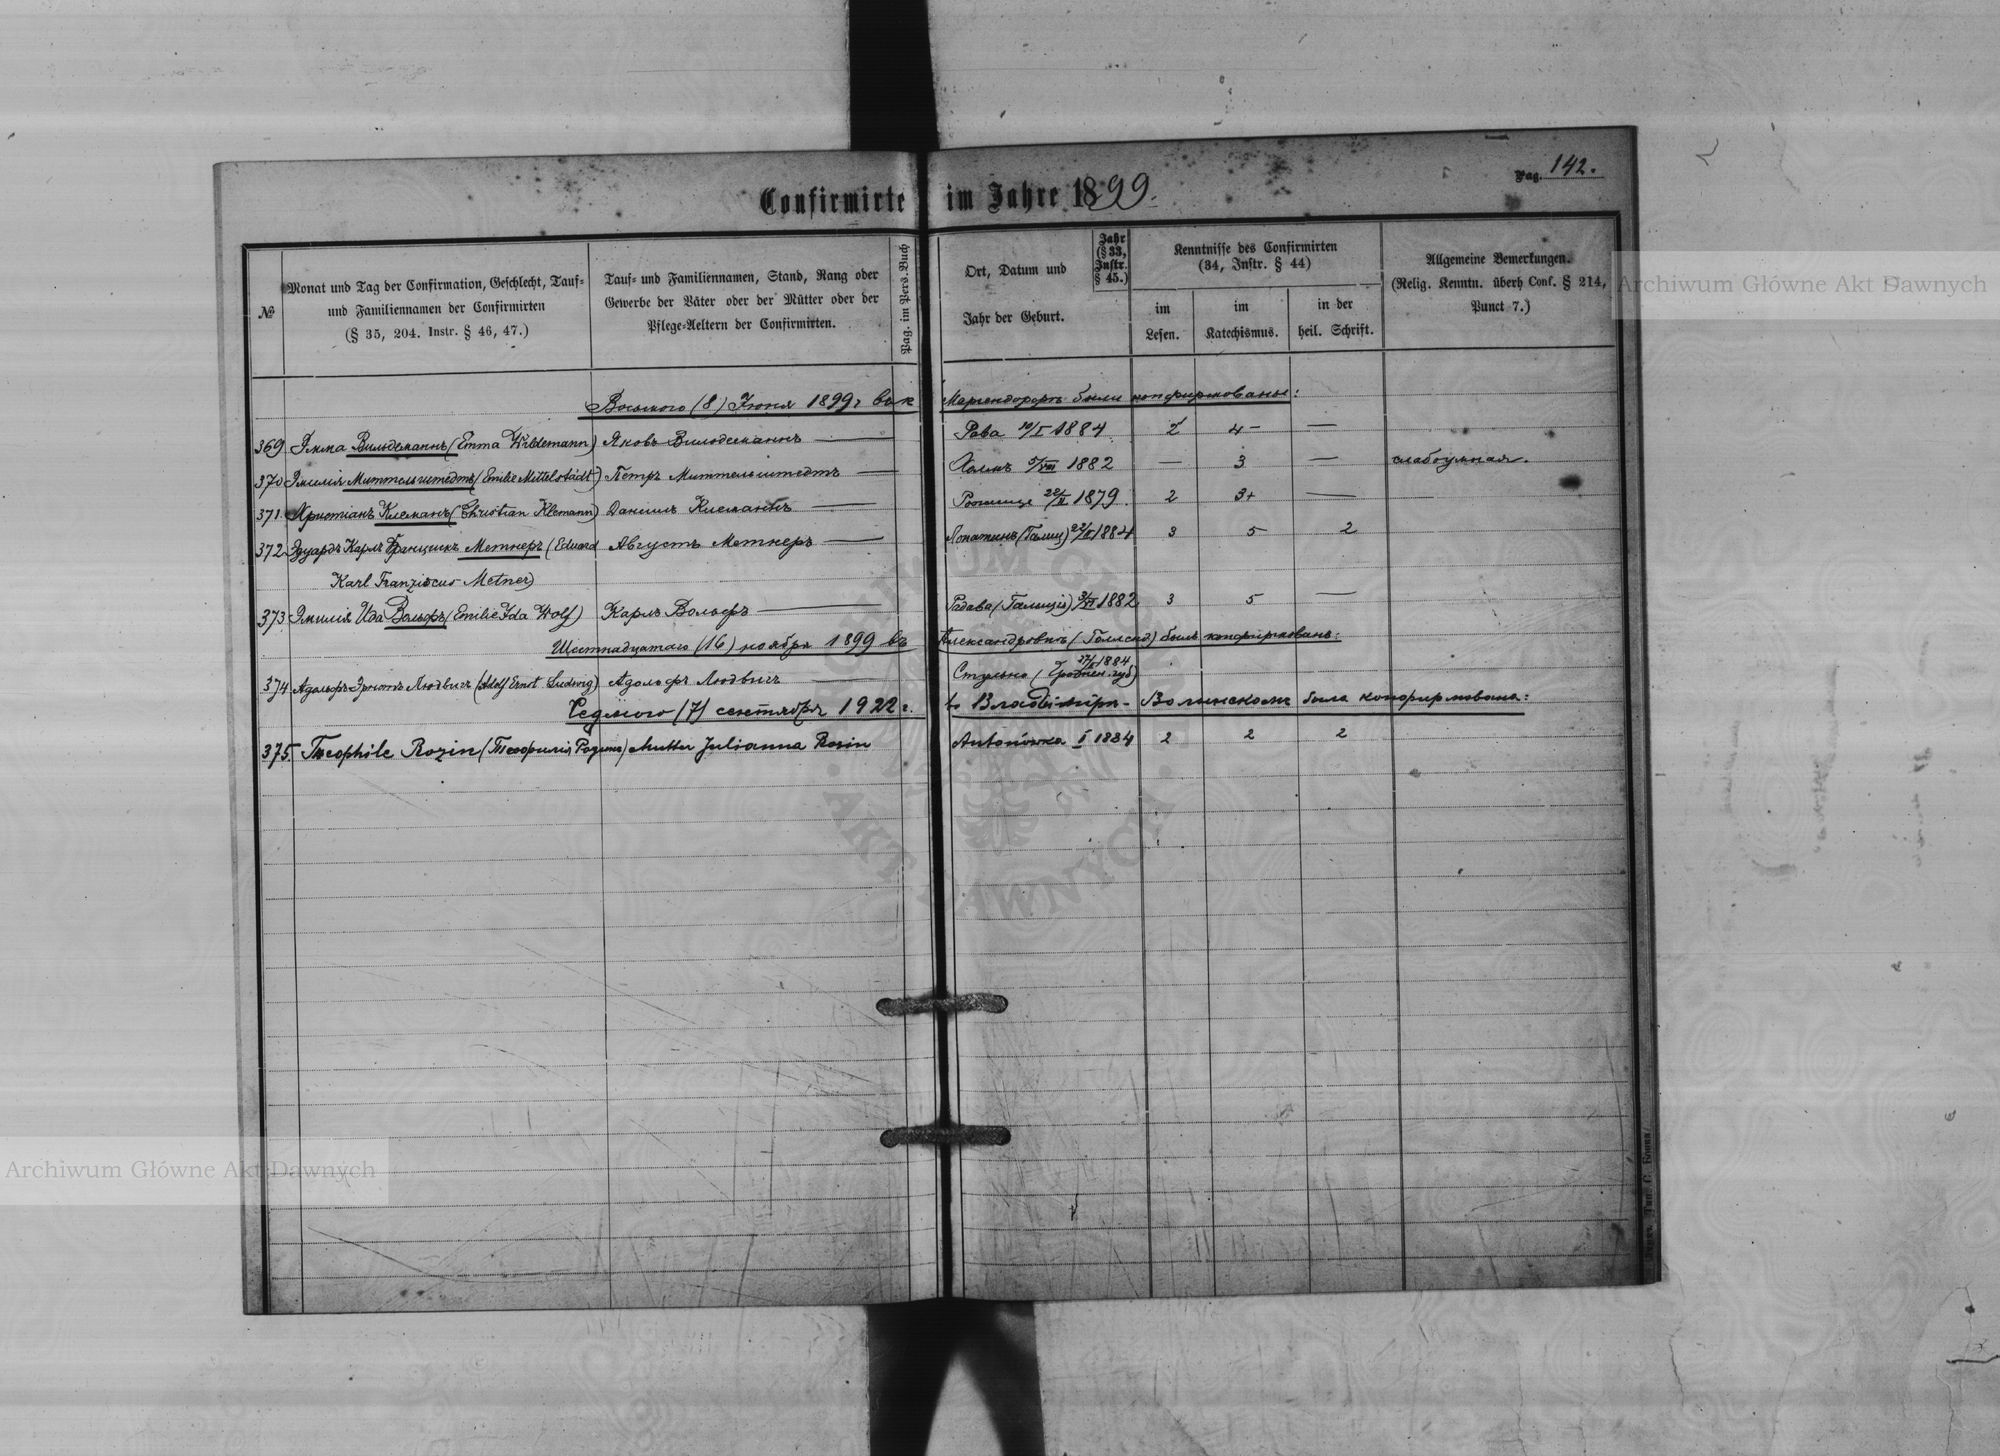 Pag. 142.
Confirmirte im Jahre 1899.
№
Monat und Tag der Confirmation, Geschlecht, Tauf-
und Familiennamen der Confirmirten
(§ 35, 204. Instr. § 46, 47.)
Tauf- und Familiennamen, Stand, Rang oder
Gewerbe der Väter oder der Mütter oder der
Pflege-Aeltern der Confirmirten.
Pag. im Pers. Buch
Ort, Datum und
Jahr der Geburt.
Jahr
(§ 33,
Instr.
§ 45.)
Kenntnisse des Confirmirten
(34, Instr. § 44)
im
Lesen.
im
Katechismus.
in der
heil. Schrift.
Allgemeine Bemerkungen.
(Relig. Kenntn. überh Conf. § 214,
Punct 7.)
Восьмого (8) Іюня 1899 г въ к Маріендорфъ были конфирмованы:
369 Эмма Вильдеманнъ (Emma Wildemann) Яковъ Вильдеманнъ — Рава 10/I 1884 2 4- —
370 Эмилія Миттельштедтъ (Emilie Mittelstädt) Петръ Миттельштедтъ — Холмъ 5/VIII 1882 — 3 — слабоумная.
371. Христіанъ Клеманъ (Christian Klemann) Даніилъ Клеманъ — Рожище 1879 2 3+ —
372 Эдуардъ Карлъ Францискъ Метнеръ (Eduard Августъ Метнеръ — Лопатинъ (Галиц) 1884 3 5 2
Karl Franziscus Metner)
373 Эмилія Ида Вольфъ (Emilie Ida Wolf) Карлъ Вольфъ — Радава (Галиція) 1882 3 5 —
Шестнадцатаго (16) ноября 1899 въ Александровкѣ был конфирмованъ:
374 Адольфъ Эрнстъ Людвигъ (Adolf Ernst Ludwig) Адольфъ Людвигъ — Стульно (Гроднен. губ) 1884
Седьмого (7) сентября 1922 г. во Владимірѣ-Волынскомъ была конфирмована:
375. Theophile Rozin (Теофилія Розинъ) Mutter Julianna Rosin Antonówka I 1884 2 2 2
Archiwum Główne Akt Dawnych
Archiwum Główne Akt Dawnych
AKT DAWNYCH